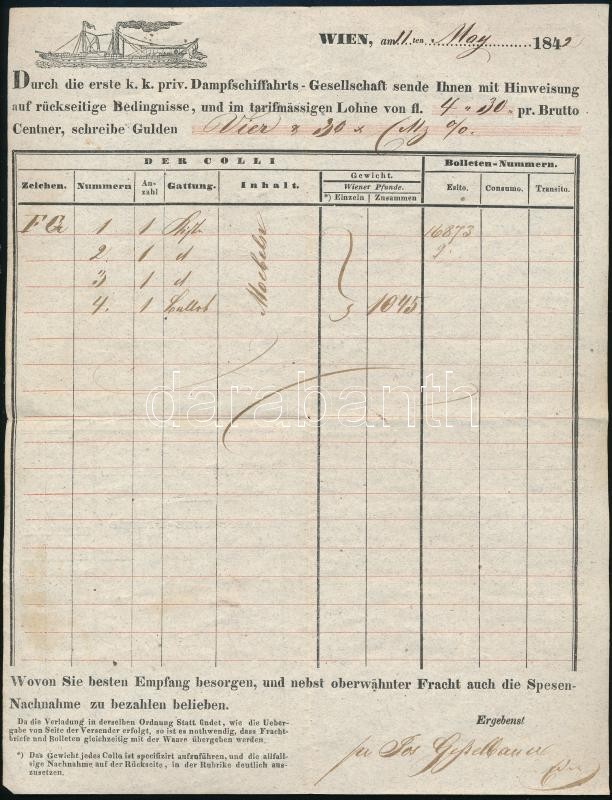 WIEN, am 11.ten May 1842
Durch die erste k. k. priv. Dampfschiffahrts-Gesellschaft sende Ihnen mit Hinweisung
auf rückseitige Bedingnisse, und im tarifmässigen Lohne von fl. 4 " 30 " pr. Brutto
Centner, schreibe Gulden Vier & 30 x CMz %.
DER COLLI
Bolleten-Nummern.
Zeichen. Nummern An-zahl Gattung. Inhalt. Gewicht. Wiener Pfunde. *) Einzeln Zusammen Esito. Consumo. Transito.
FG 1 1 Moebeln 16873
2. 1 d 9.
3 1 d
4. 1 1045
darabanth
Wovon Sie besten Empfang besorgen, und nebst oberwähnter Fracht auch die Spesen-
Nachnahme zu bezahlen belieben.
Da die Verladung in derselben Ordnung Statt findet, wie die Ueber-
gabe von Seite der Versender erfolgt, so ist es nothwendig, dass Fracht-
briefe und Bolleten gleichzeitig mit der Waare übergeben werden.
*) Das Gewicht jedes Colla ist specifizirt aufzuführen, und die allfäl-
lige Nachnahme auf der Rückseite, in der Rubrike deutlich aus-
zusetzen.
Ergebenst
per Jos